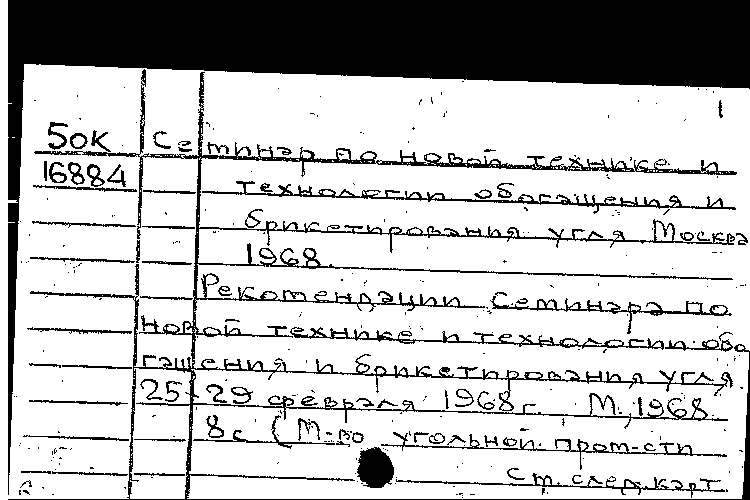 1
50К Семинар по новой технике и
16884 технологии обогащения и
брикетирования угля Москва
1968.
Рекомендации семинара по
новой технике и технологии обо
гащения и брикетирования угля
25-29 февраля 1968г. М., 1968.
8с (М-во угольной пром-сти
См. след. карт.